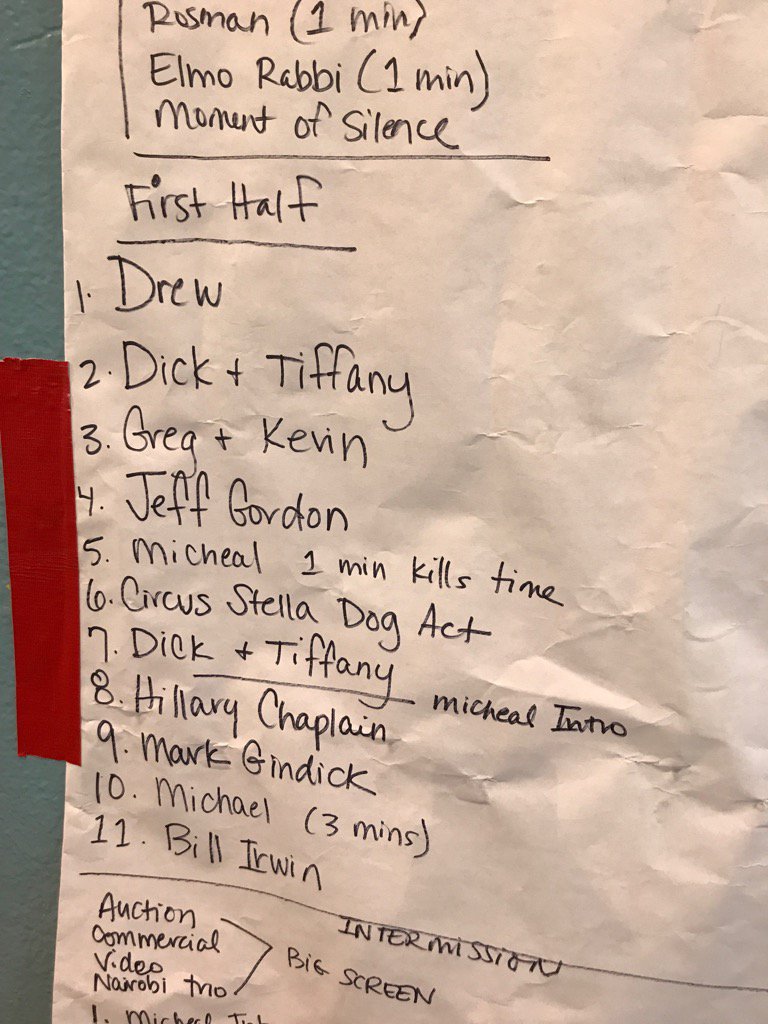 Rosman (1 min)
Elmo Rabbi (1 min)
Moment of Silence
First Half
1. Drew
2. Dick + Tiffany
3. Greg + Kevin
4. Jeff Gordon
5. Micheal 1 min kills time
6. Circus Stella Dog Act
7. Dick + Tiffany
micheal Intro
8. Hillary Chaplain
9. Mark Gindick
10. Michael (3 mins)
11. Bill Irwin
INTERMISSION
Auction
Commercial
Video
Nairobi trio
BIG SCREEN
1. Micheal